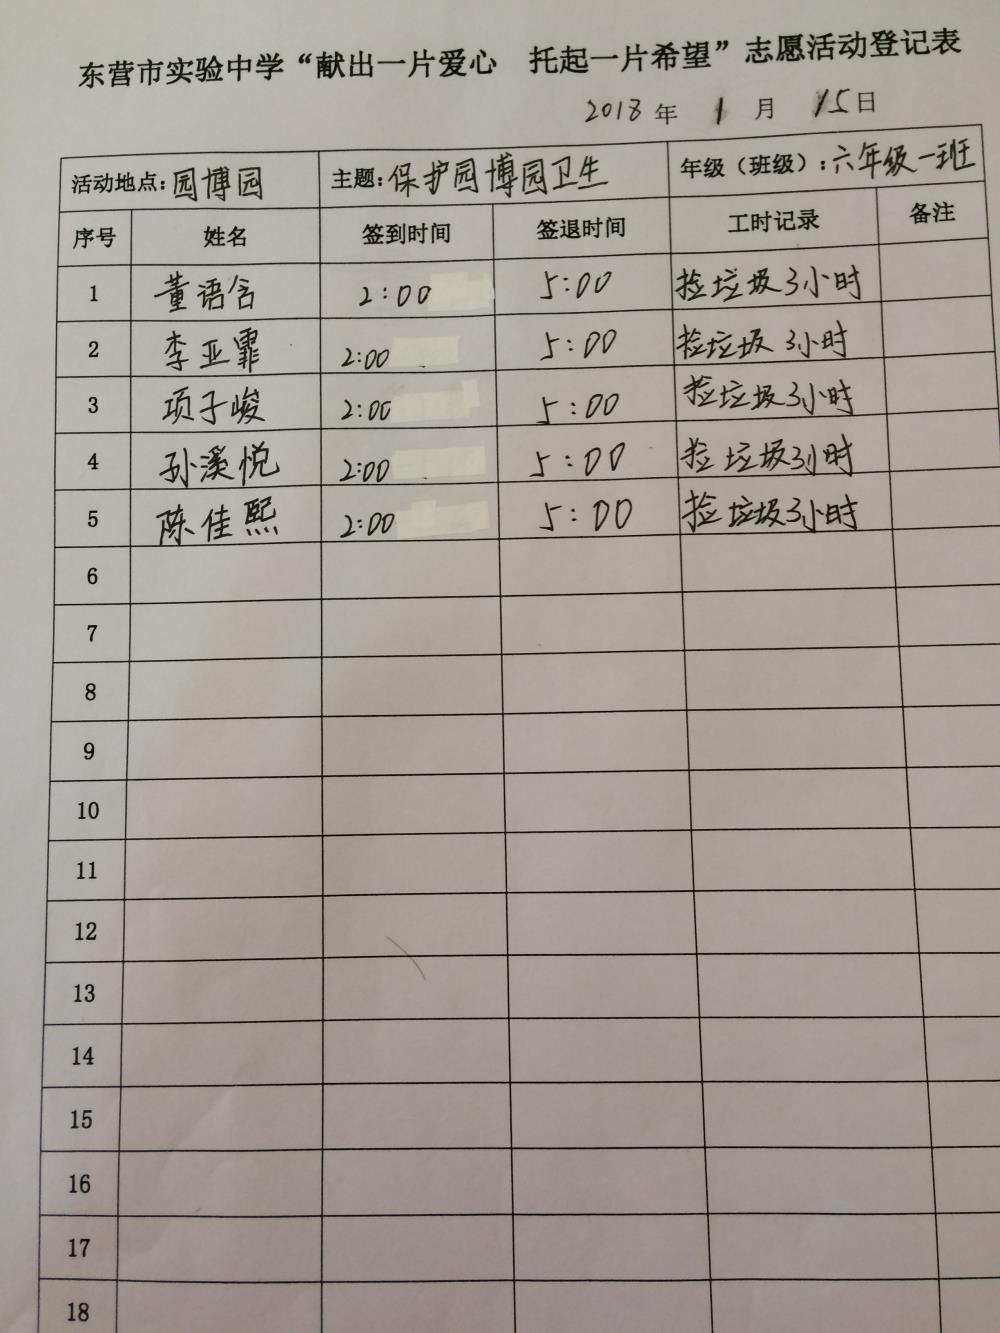 东营市实验中学“献出一片爱心 托起一片希望”志愿活动登记表
2018 年 1 月 15 日
活动地点：园博园 主题：保护园博园卫生 年级（班级）：六年级一班
序号 姓名 签到时间 签退时间 工时记录 备注
1 董语含 2:00 5:00 捡垃圾3小时
2 李亚霏 2:00 5:00 捡垃圾3小时
3 项子峻 2:00 5:00 捡垃圾3小时
4 孙溪悦 2:00 5:00 捡垃圾3小时
5 陈佳熙 2:00 5:00 捡垃圾3小时
6
7
8
9
10
11
12
13
14
15
16
17
18